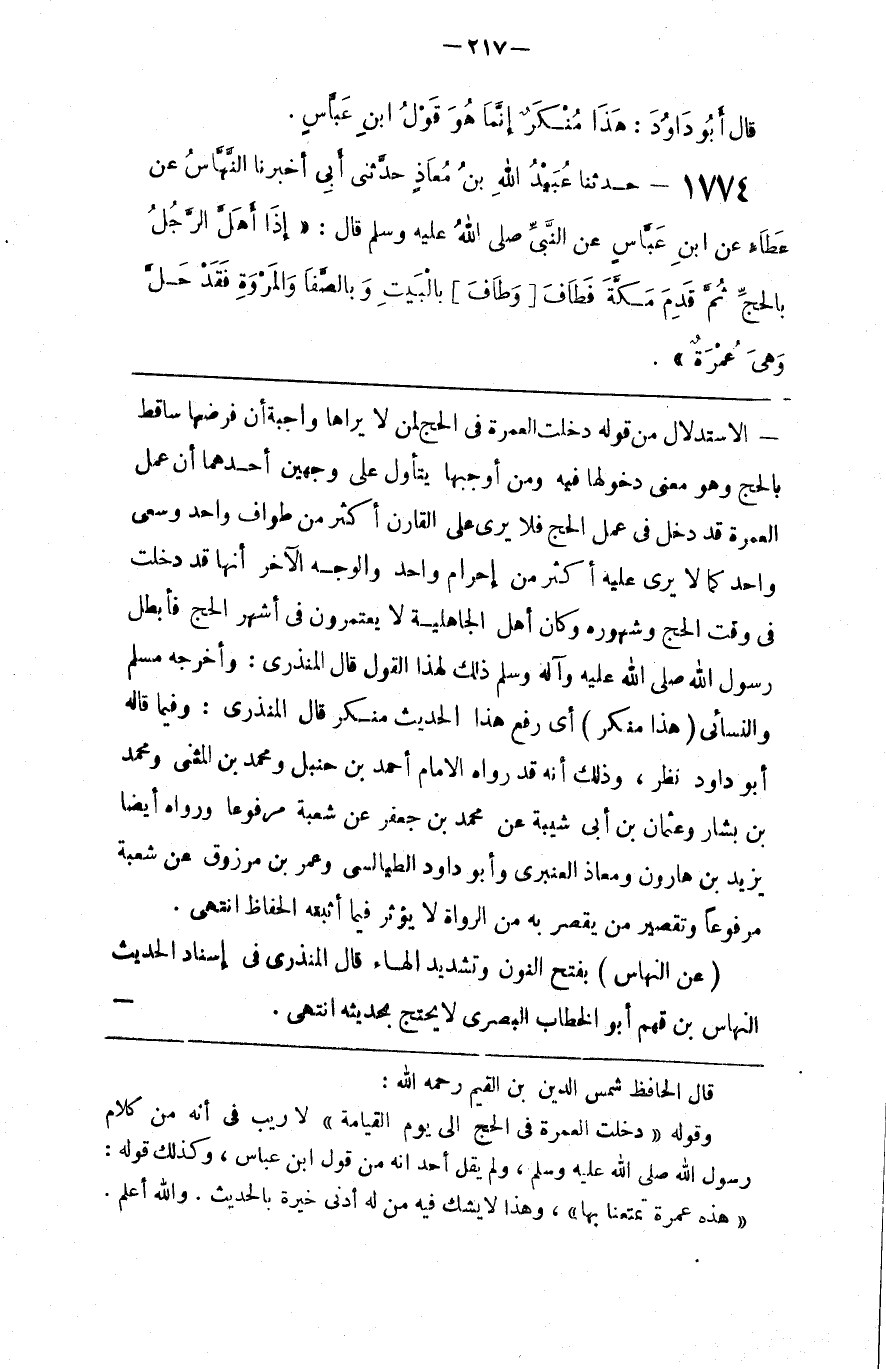 –٢١٧–
قال أَبُو دَاوُدَ : هَذَا مُنْكَرٌ إنَّمَا هُوَ قَوْلُ ابنِ عَبَّاسٍ .
١٧٧٤ – حدثنا عُبَيْدُ اللهِ بنُ مُعَاذٍ حدَّثنى أَبِى أخبرنا النَّهَّاسُ عن
عَطَاءٍ عن ابنِ عَبَّاسٍ عن النَّبىِّ صلى اللهُ عليه وسلم قال : « إِذَا أَهَلَّ الرَّجُلُ
بالحجِّ ثُمَّ قَدِمَ مَكَّةَ فَطَافَ [ وَطَافَ ] بالْبَيتِ وَبالصَّفَا وَالمَرْوَةِ فَقَدْ حَلَّ
وَهِىَ عُمْرَةٌ » .
– الاستدلال من قوله دخلت العمرة فى الحج لمن لا يراها واجبة أن فرضها ساقط
بالحج وهو معنى دخولها فيه ومن أوجبها يتأول على وجهين أحدهما أن عمل
العمرة قد دخل فى عمل الحج فلا يرى على القارن أكثر من طواف واحد وسعى
واحد كما لا يرى عليه أكثر من إحرام واحد والوجه الآخر أنها قد دخلت
فى وقت الحج وشهوره وكان أهل الجاهلية لا يعتمرون فى أشهر الحج فأبطل
رسول الله صلى الله عليه وآله وسلم ذلك لهذا القول قال المنذرى : وأخرجه مسلم
والنسائى ( هذا منكر ) أى رفع هذا الحديث منكر قال المنذرى : وفيما قاله
أبو داود نظر ، وذلك أنه قد رواه الامام أحمد بن حنبل ومحمد بن المثنى ومحمد
بن بشار وعثمان بن أبى شيبة عن محمد بن جعفر عن شعبة مرفوعا ورواه أيضا
يزيد بن هارون ومعاذ العنبرى وأبو داود الطيالسى وعمر بن مرزوق عن شعبة
مرفوعاً وتقصير من يقصر به من الرواة لا يؤثر فيما أثبته الحفاظ انتهى .
( عن النهاس ) بفتح النون وتشديد الهاء قال المنذرى فى إسناد الحديث
النهاس بن قهم أبو الخطاب البصرى لا يحتج بحديثه انتهى . –
قال الحافظ شمس الدين بن القيم رحمه الله :
وقوله « دخلت العمرة فى الحج الى يوم القيامة » لا ريب فى أنه من كلام
رسول الله صلى الله عليه وسلم ، ولم يقل أحد انه من قول ابن عباس ، وكذلك قوله :
« هذه عمرة تمتعنا بها » ، وهذا لايشك فيه من له أدنى خيرة بالحديث . والله أعلم .